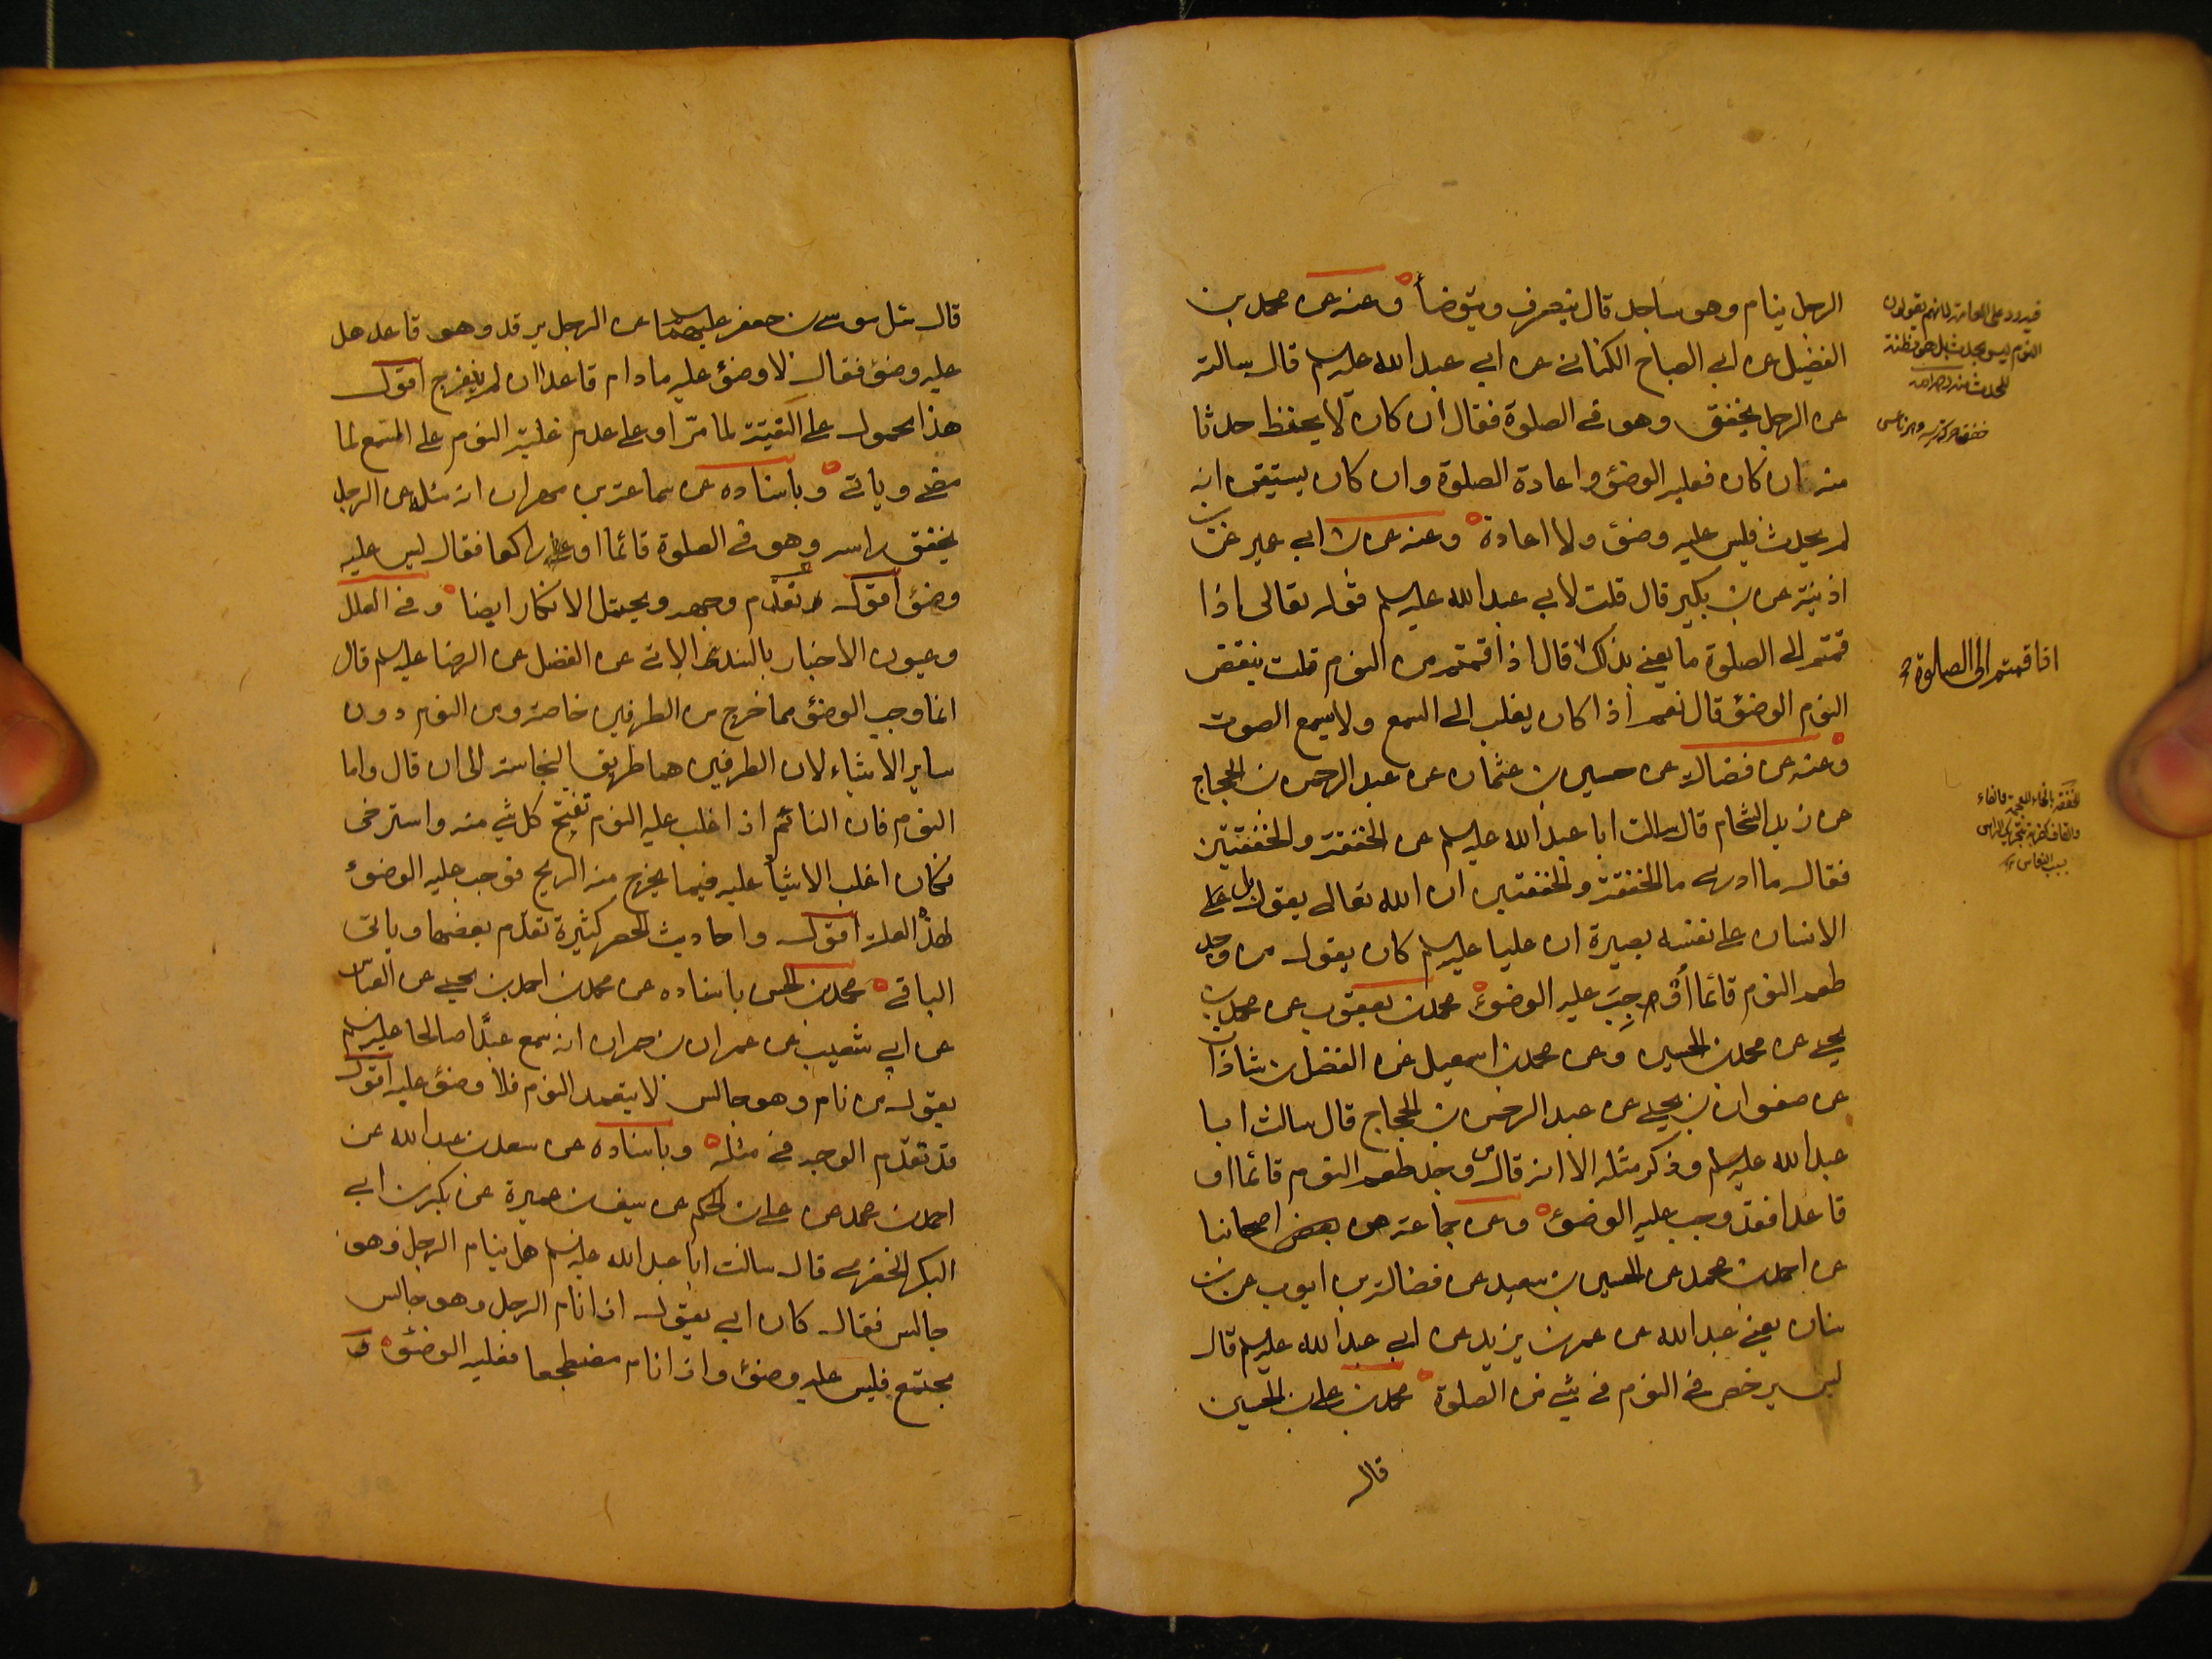 الرجل ينام وهو ساجد قال ينصرف ويتوضأ وعنه عن محمد بن
الفضيل عن ابي الصباح الكناني عن ابي عبد الله عليه السلم قال سالته
عن الرجل يخفق وهو في الصلوة فقال ان كان لا يحفظ حدثا
منه ان كان فعليه الوضؤ واعادة الصلوة وان كان يستيقن انه
لم يحدث فليس عليه وضؤ ولا اعادة وعنه عن بن ابي عمير عن بن
اذينة عن بن بكير قال قلت لابي عبد الله عليه السلم قوله تعالى اذا
قمتم الى الصلوة ما يعني بذلك قال اذا قمتم من النوم قلت ينقض
النوم الوضؤ قال نعم اذا كان يغلب الى السمع ولا يسمع الصوت
وعنه عن فضالة عن حسين بن عثمان عن عبد الرحمن بن الحجاج
عن زيد الشحام قال سالت ابا عبد الله عليه السلم عن الخفقة والخفقتين
فقال ما ادري ما الخفقة والخفقتين ان الله تعالى يقول بل
الانسان على نفسه بصيرة ان عليا عليه السلم كان يقول من وجد
طعم النوم قائما او وجب عليه الوضوء محمد بن يعقوب عن محمد بن
يحيى عن محمد بن الحسين وعن محمد بن اسمعيل عن الفضل بن شاذان
عن صفوان بن يحيى عن عبد الرحمن بن الحجاج قال سالت ابا
عبد الله عليه السلم وذكر مثله الا انه قال من وجد طعم النوم قائما او
قاعدا فقد وجب عليه الوضؤ وعن جماعة عن بعض اصحابنا
عن احمد بن محمد عن الحسين بن سعيد عن فضالة بن ايوب عن بن
سنان يعني عبد الله عن عمر بن يزيد عن ابي عبد الله عليه السلم قال
ليس يرخص في النوم في شئ من الصلوة محمد بن علي بن الحسين
قال
فيه رد على العامة لانهم يقولون
النوم ليس بحدث بل هو مظنة
للحدث منه
اذا قمتم الى الصلوة
الخفقة بالخاء المعجمة والفاء
والقاف كضربة تحريك الراس
بسبب النعاس
قال سئل موسى بن جعفر عليهما السلام عن الرجل يرقد وهو قاعد هل
عليه وضؤ فقال لا وضؤ عليه ما دام قاعدا ان لم ينفرج اقول
هذا محمول على التقية لما مر او على عدم غلبة النوم على السمع لما
مضى وياتي وباسناده عن سماعة بن مهران انه سئله عن الرجل
يخفق راسه وهو في الصلوة قائما او راكعا فقال ليس عليه
وضؤ اقول تقدم وجهه ويحتمل الانكار ايضا وفي العلل
وعيون الاخبار بالسند الاتي عن الفضل عن الرضا عليه السلم قال
انما وجب الوضؤ مما خرج من الطرفين خاصة ومن النوم دون
ساير الاشياء لان الطرفين هما طريق النجاسة الى ان قال واما
النوم فان النائم اذا غلب عليه النوم تفتح كل شئ منه واسترخى
فكان اغلب الاشياء عليه فيما يخرج منه الريح فوجب عليه الوضوء
لهذه العلة اقول واحاديث الحصر كثيرة تقدم بعضها وياتي
الباقي محمد بن الحسن باسناده عن محمد بن احمد بن يحيى عن العباس
عن ابي شعيب عن عمران بن حمران انه سمع عبدا صالحا عليه السلم
يقول من نام وهو جالس لا يتعمد النوم فلا وضؤ عليه اقول
قد تقدم الوجه في مثله وباسناده عن سعد بن عبد الله عن
احمد بن محمد عن علي بن الحكم عن سيف بن عميرة عن بكر بن ابي
البكر الحضرمي قال سالت ابا عبد الله عليه السلم هل ينام الرجل وهو
جالس فقال كان ابي يقول اذا نام الرجل وهو جالس
مجتمع فليس عليه وضؤ واذا نام مضطجعا فعليه الوضؤ و